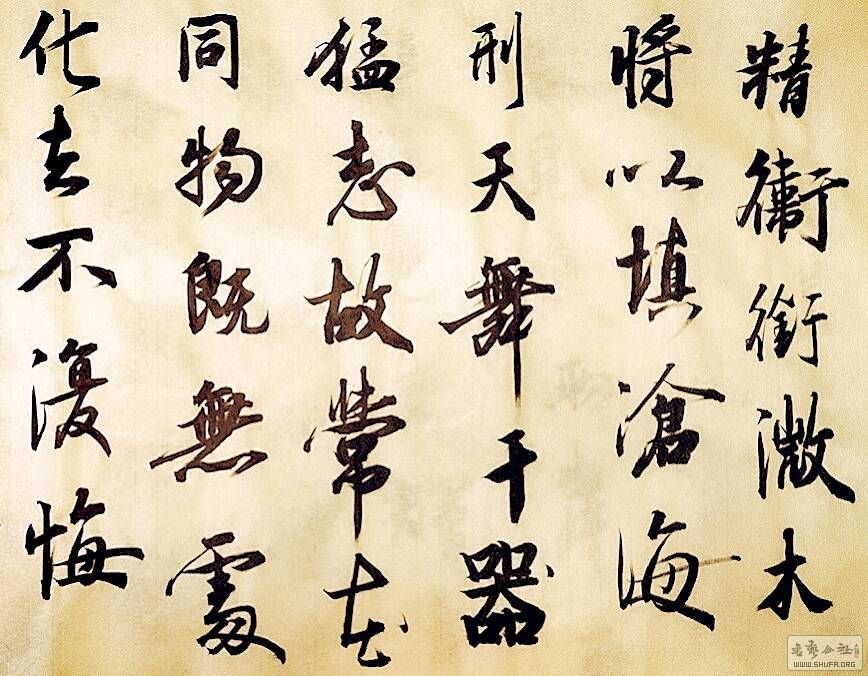 精衛銜微木
將以填滄海
刑天舞干器
猛志故常在
同物既無慮
化去不復悔
书艺公社
WWW.SHUFA.ORG